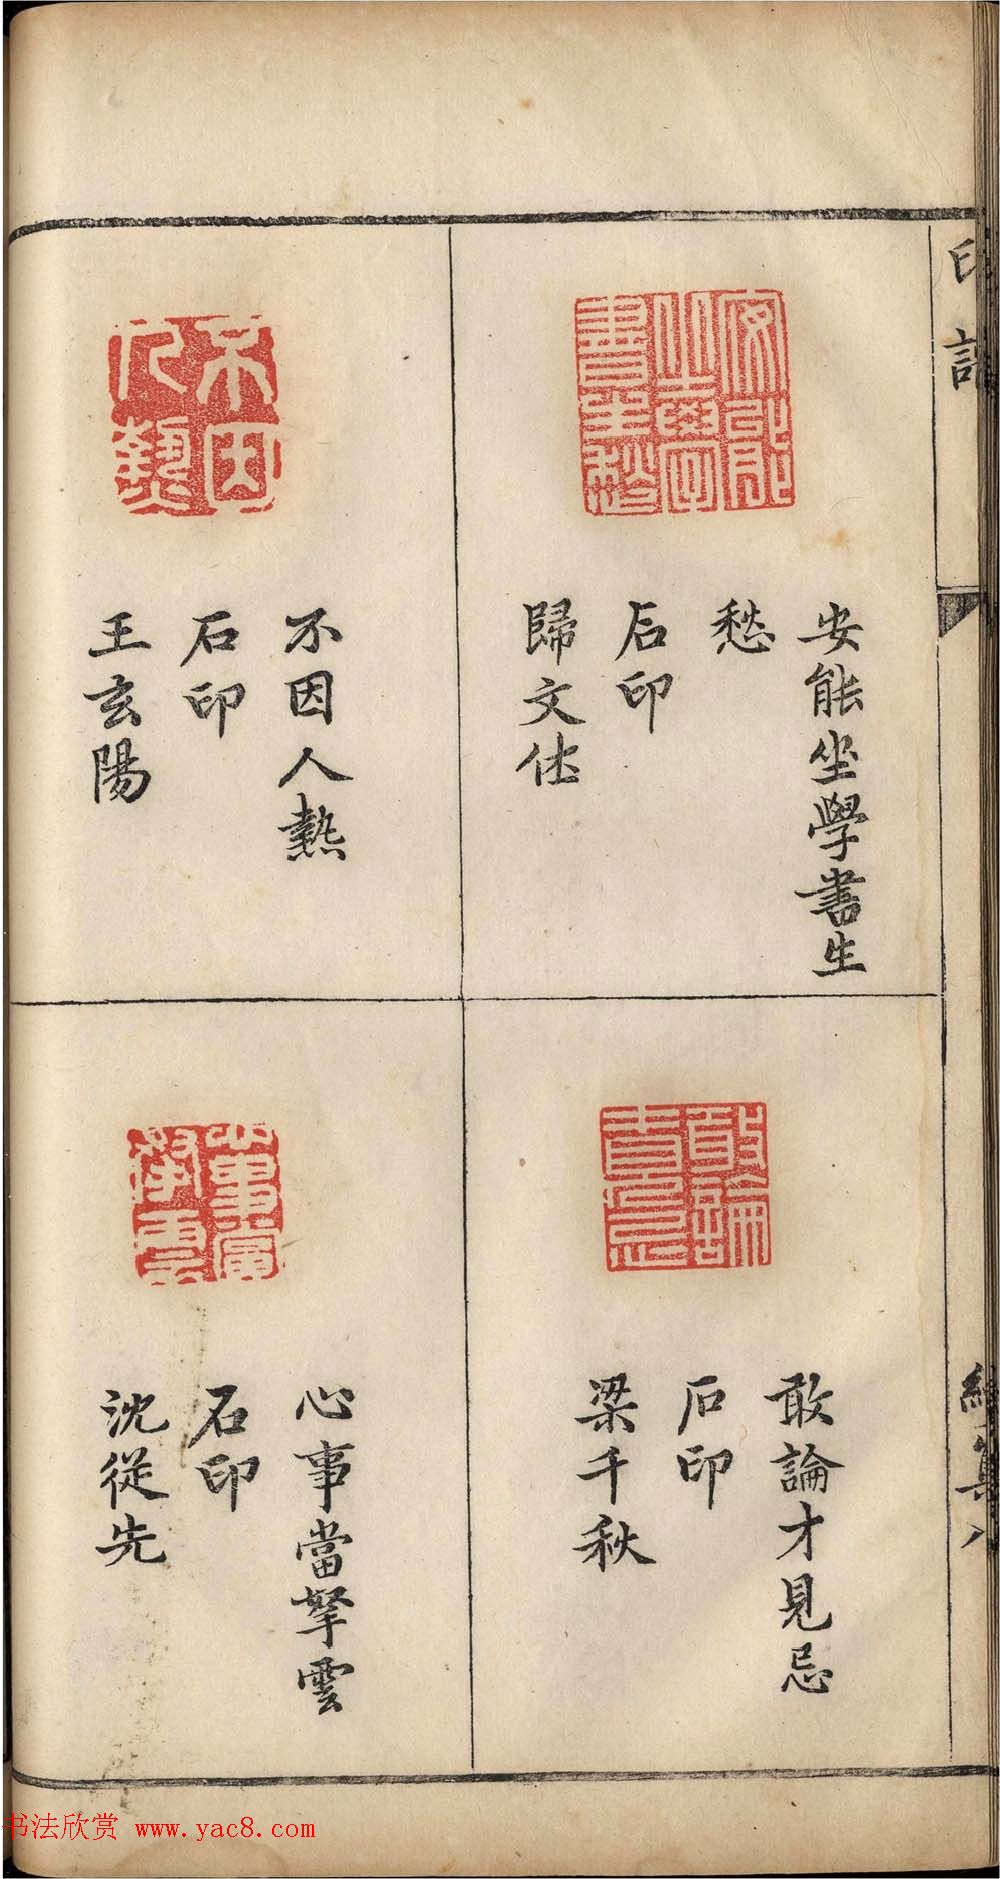 印譜
安能坐學書生
愁
石印
歸文休
不因人熱
石印
王玄陽
敢論才見忌
石印
梁千秋
心事當拏雲
石印
沈從先
书法欣赏 www.yac8.com